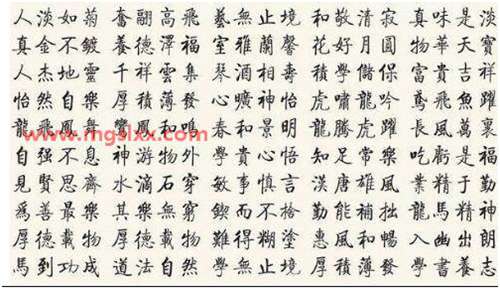 人淡如菊 奮翮高飛 藝無止境 和敬清寂 真味是淡
真金不鍍 養德澤福 室雅蘭馨 花好月圓 物華天寶
人杰地靈 千祥雲集 琴酒相壽 積學儲保 富貴吉祥
怡然自樂 厚積薄發 心曠神怡 虎嘯龍吟 鳶飛魚躍
龍飛鳳舞 鸞鳳和 春和景明 龍騰虎躍 長風萬裏
www.mgslxx.com
自強不息 神游物外 學貴心悟 知足常樂 吃虧是福
見賢思齊 水滴石穿 敏事慎言 漢唐雄風 業精于勤
爲善最樂 其樂無窮 鍥而不捨 勤能補拙 龍馬精神
厚德載物 厚德載物 難得糊塗 惠風和暢 入幽出朗
馬到功成 道法自然 學無止境 厚積薄發 學書養志